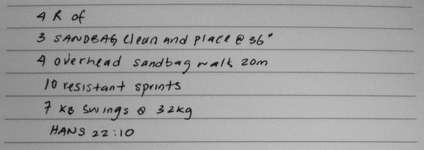 4 R of
3 SANDBAG clean and place @ 36"
4 overhead sandbag walk 20m
10 resistant sprints
7 KB swings @ 32kg
HANS 22:10